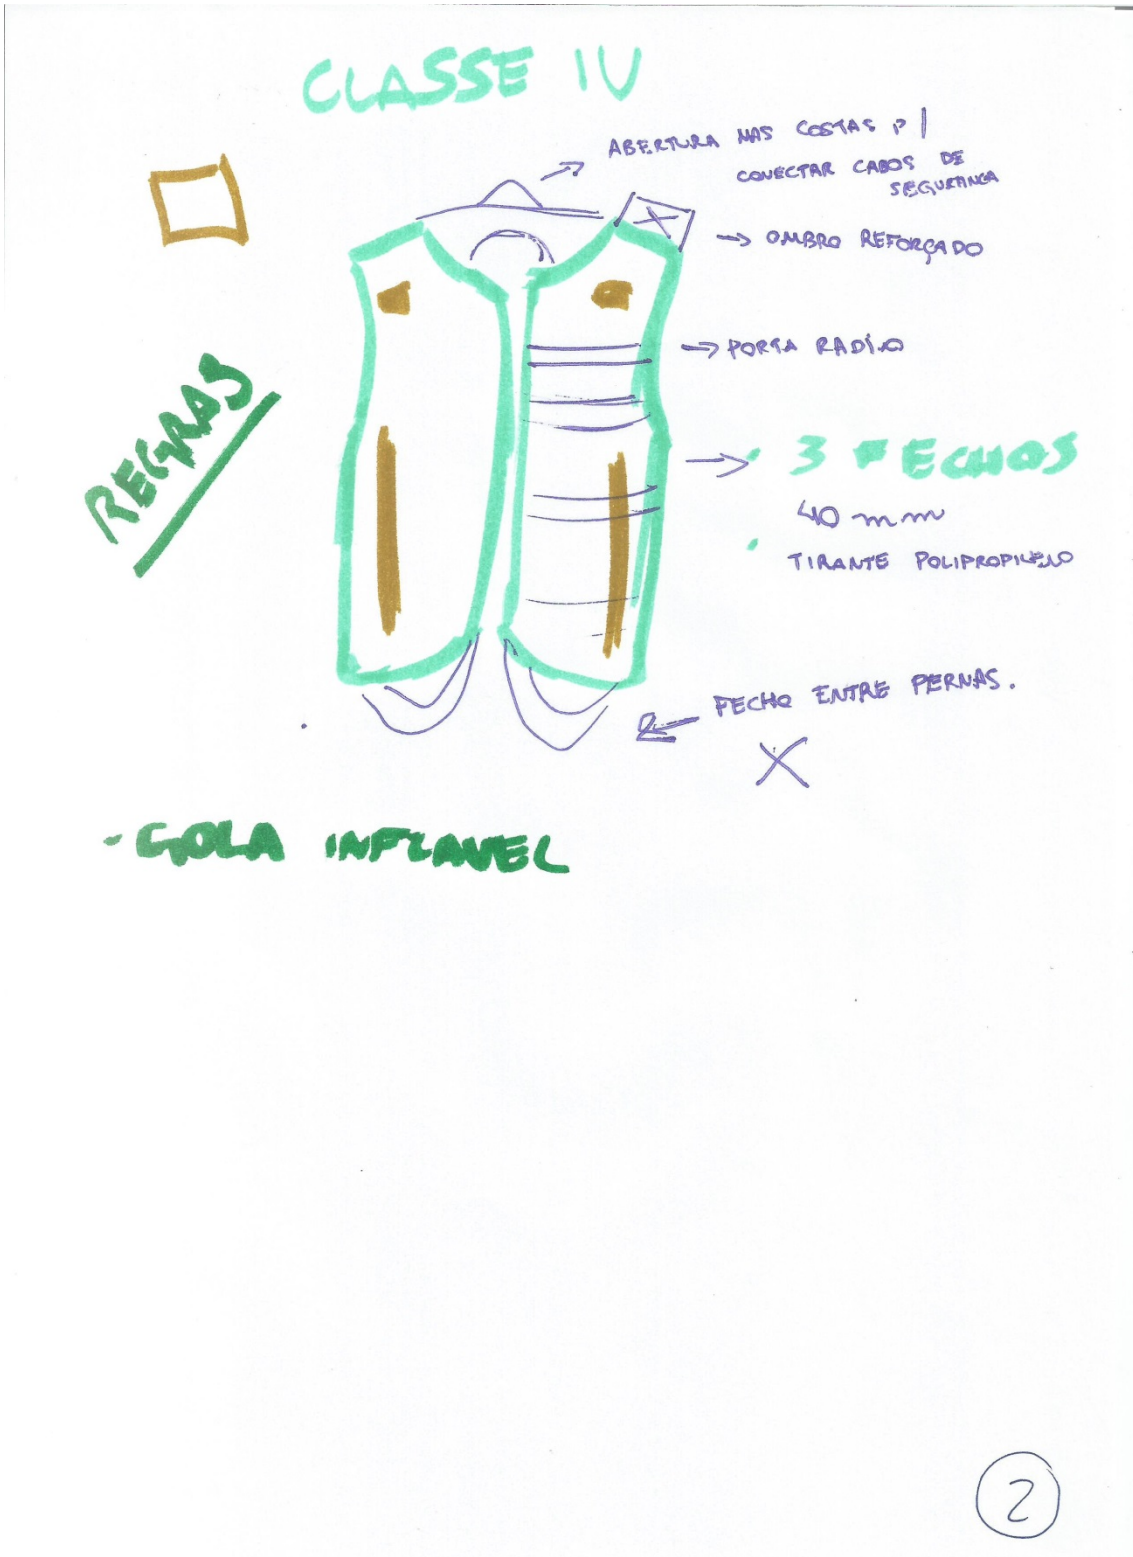 CLASSE IV
ABERTURA NAS COSTAS P/
CONECTAR CABOS DE
SEGURANCA
OMBRO REFORÇADO
PORTA RADIO
REGRAS
3 FECHOS
40 mm
TIRANTE POLIPROPILENO
FECHO ENTRE PERNAS.
X
- GOLA INFLAVEL
2